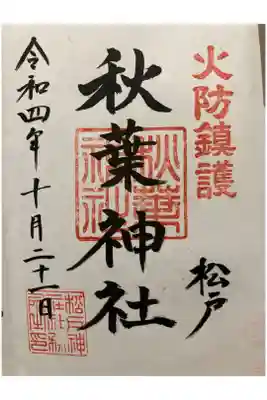 火防鎮護
松戸
秋葉神社
秋葉
神社
令和四年十月二十一日
松戸神
社社務
所之印